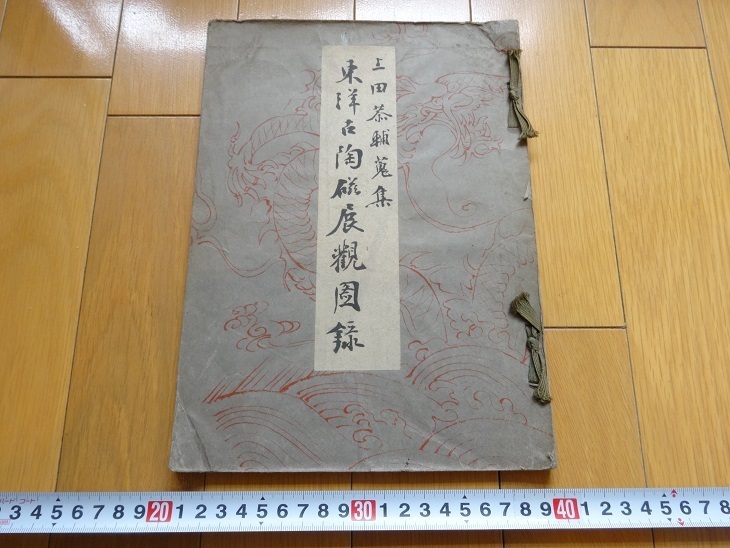 上田恭輔蒐集
東洋古陶磁展觀圖錄
2 3 4 5 6 7 8 9 20 1 2 3 4 5 6 7 8 9 30 1 2 3 4 5 6 7 8 9 40 1 2 3 4 5 6 7 8